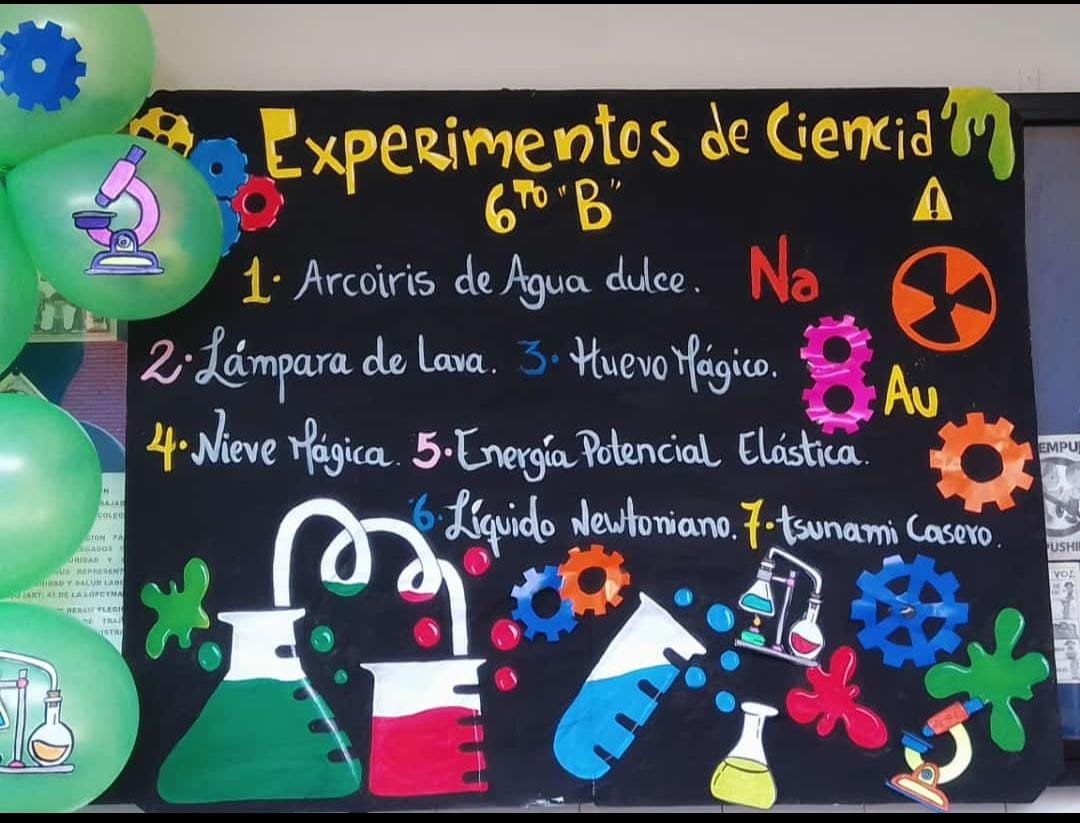 Experimentos de Ciencia
6TO "B"
1. Arcoiris de Agua dulce. Na
2. Lámpara de Lava. 3. Huevo Mágico.
Au
4. Nieve Mágica. 5. Energía Potencial Elástica.
6. Líquido Newtoniano. 7. tsunami Casero.
VOZ